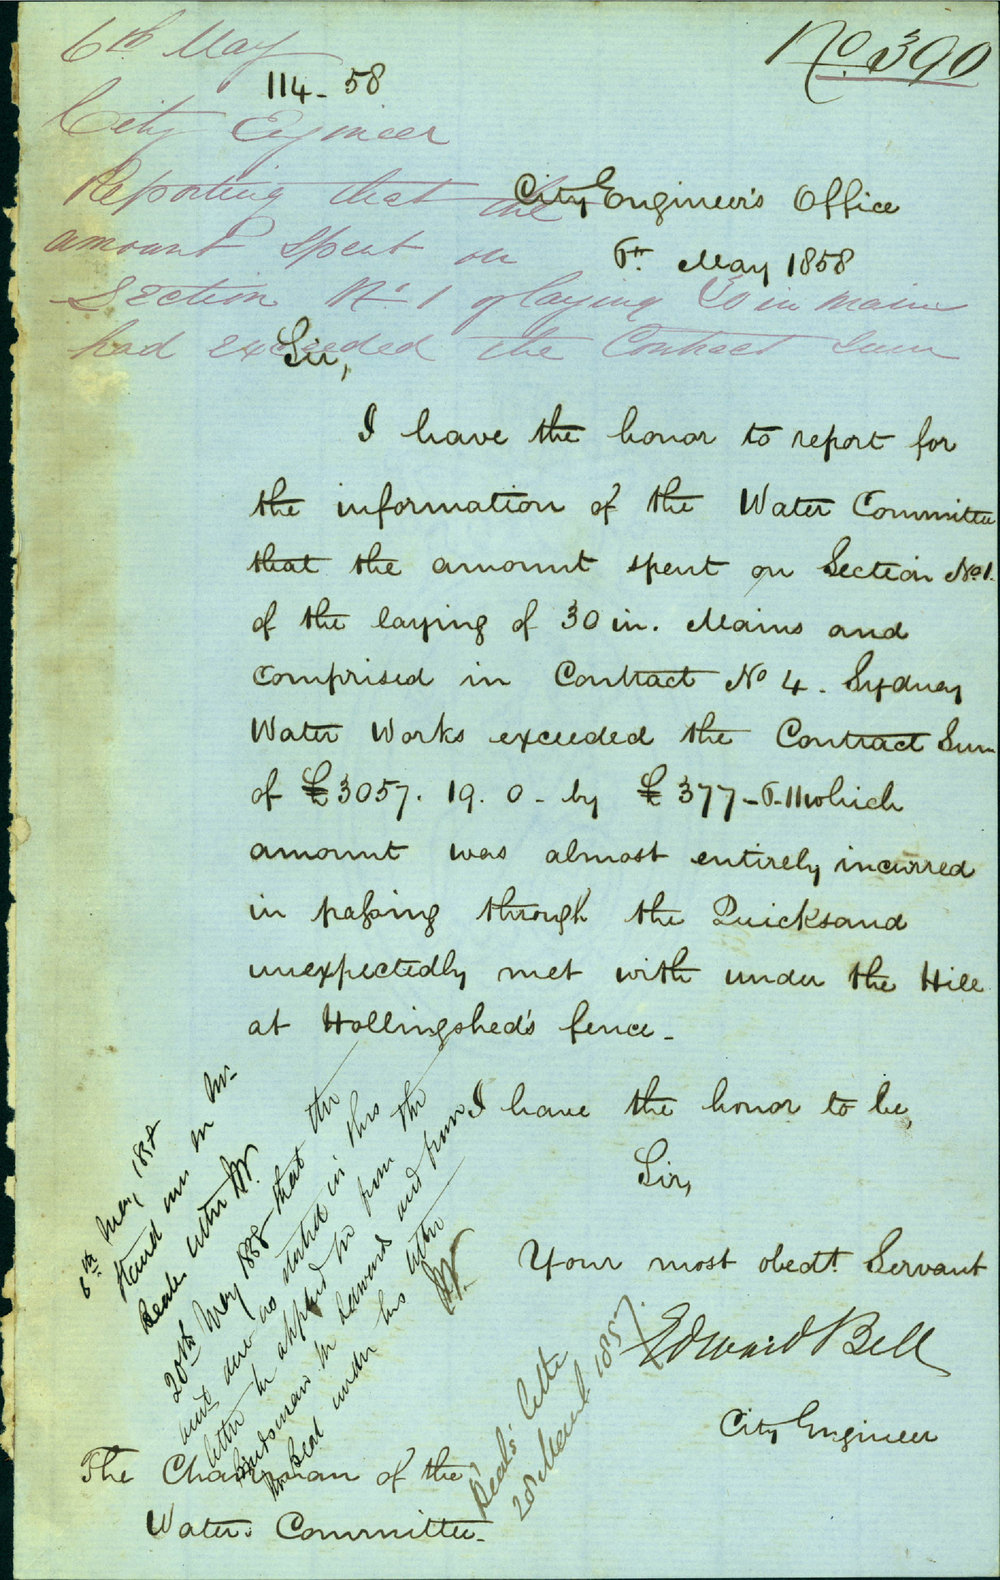 6th May
No. 390
114 - 58
City Engineer
Reporting that the
amount spent on
Section No 1 of laying 30 in main
had exceeded the Contract sum
City Engineer's Office
6th. May 1858
Sir,
I have the honor to report for
the information of the Water Committee
that the amount spent on Section No 1.
of the laying of 30 in. Mains and
comprised in Contract No 4. Sydney
Water Works exceeded the Contract Sum
of £3057. 19. 0 - by £377 - 6 - 11 which
amount was almost entirely incurred
in passing through the Quicksand
unexpectedly met with under the Hill
at Hollingshed's fence -
I have the honor to be,
Sir,
Your most obedt. Servant
Edward Bell
City Engineer
The Chairman of the
Water. Committee.
6th May, 1858
Stand over in Mr.
Beals letter
20th May 1858 - that the
amt due as stated in this
letter be applied for from the
Bondsman Mr Edward and from
Mr Beal under his letter
Beal's letter
20 March 1857.